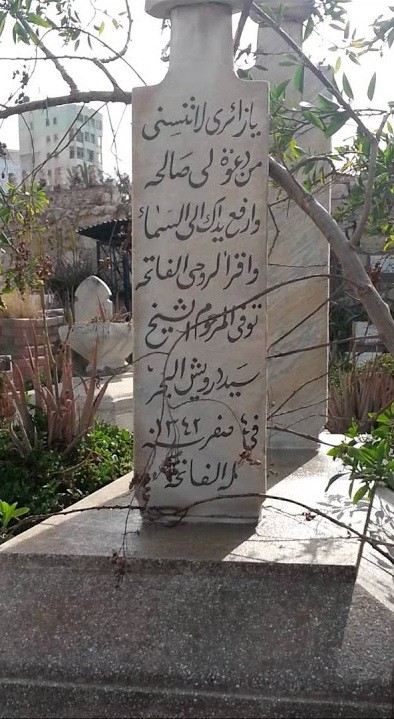 يا زائرى لا تنسنى
من دعوة لى صالحه
وارفع يداك الى السماء
واقرا لروحى الفاتحه
توفى المرحوم الشيخ
سيد درويش البحر
فى ٤ صفر سنه ١٣٤٢
له الفاتحه